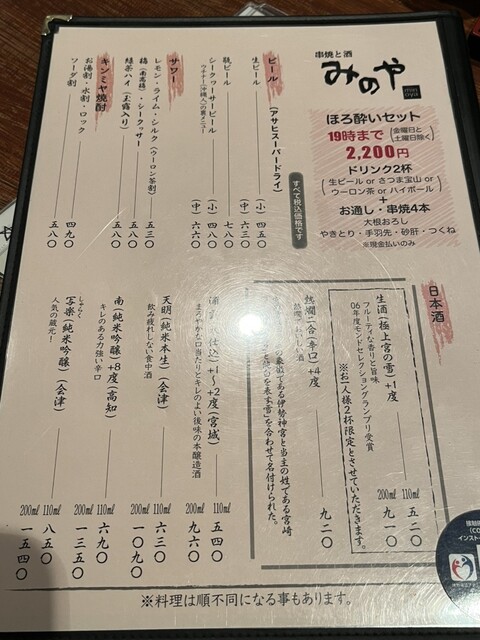 串焼と酒
みのや
ほろ酔いセット
19時まで(金曜日と土曜日除く)
2,200円
ドリンク2杯
(生ビール or さつま宝山 or
ウーロン茶 or ハイボール)
+
お通し・串焼4本
大根おろし
やきとり・手羽先・砂肝・つくね
※現金払いのみ
すべて税込価格です
ビール (アサヒスーパードライ)
生ビール (小) 四五〇
(中) 六三〇
瓶ビール 七八〇
シークヮーサービール (小) 四八〇
(中) 六六〇
サワー
レモン・ライム・シルク(ウーロン茶割) 五三〇
梅(南高梅)・シークヮサー 五八〇
緑茶ハイ(玉露入り) 五八〇
キンミヤ焼酎
お湯割・水割・ロック 四九〇
ソーダ割 五八〇
日本酒
生酒(極上宮の雪)+1度 110ml 五二〇
200ml 九一〇
フルーティな香りと旨味
06年度モンドセレクショングランプリ受賞
※お一人様2杯限定とさせていただきます。
熱燗二合(辛口)+4度 九二〇
象徴である伊勢神宮と当主の姓である宮崎
を合わせて名付けられた。
+1〜+2度(宮城) 110ml 五四〇
200ml 九六〇
まろやかな口当たりとキレのよい後味の本醸造酒
天明(純米本生)(会津) 110ml 六三〇
200ml 一〇九〇
飲み疲れしない食中酒
南(純米吟醸)+8度(高知) 110ml 六九〇
200ml 一三五〇
キレのある力強い辛口
しゃらく
写楽(純米吟醸)(会津) 110ml 八五〇
200ml 一五四〇
人気の蔵元!
※料理は順不同になる事もあります。